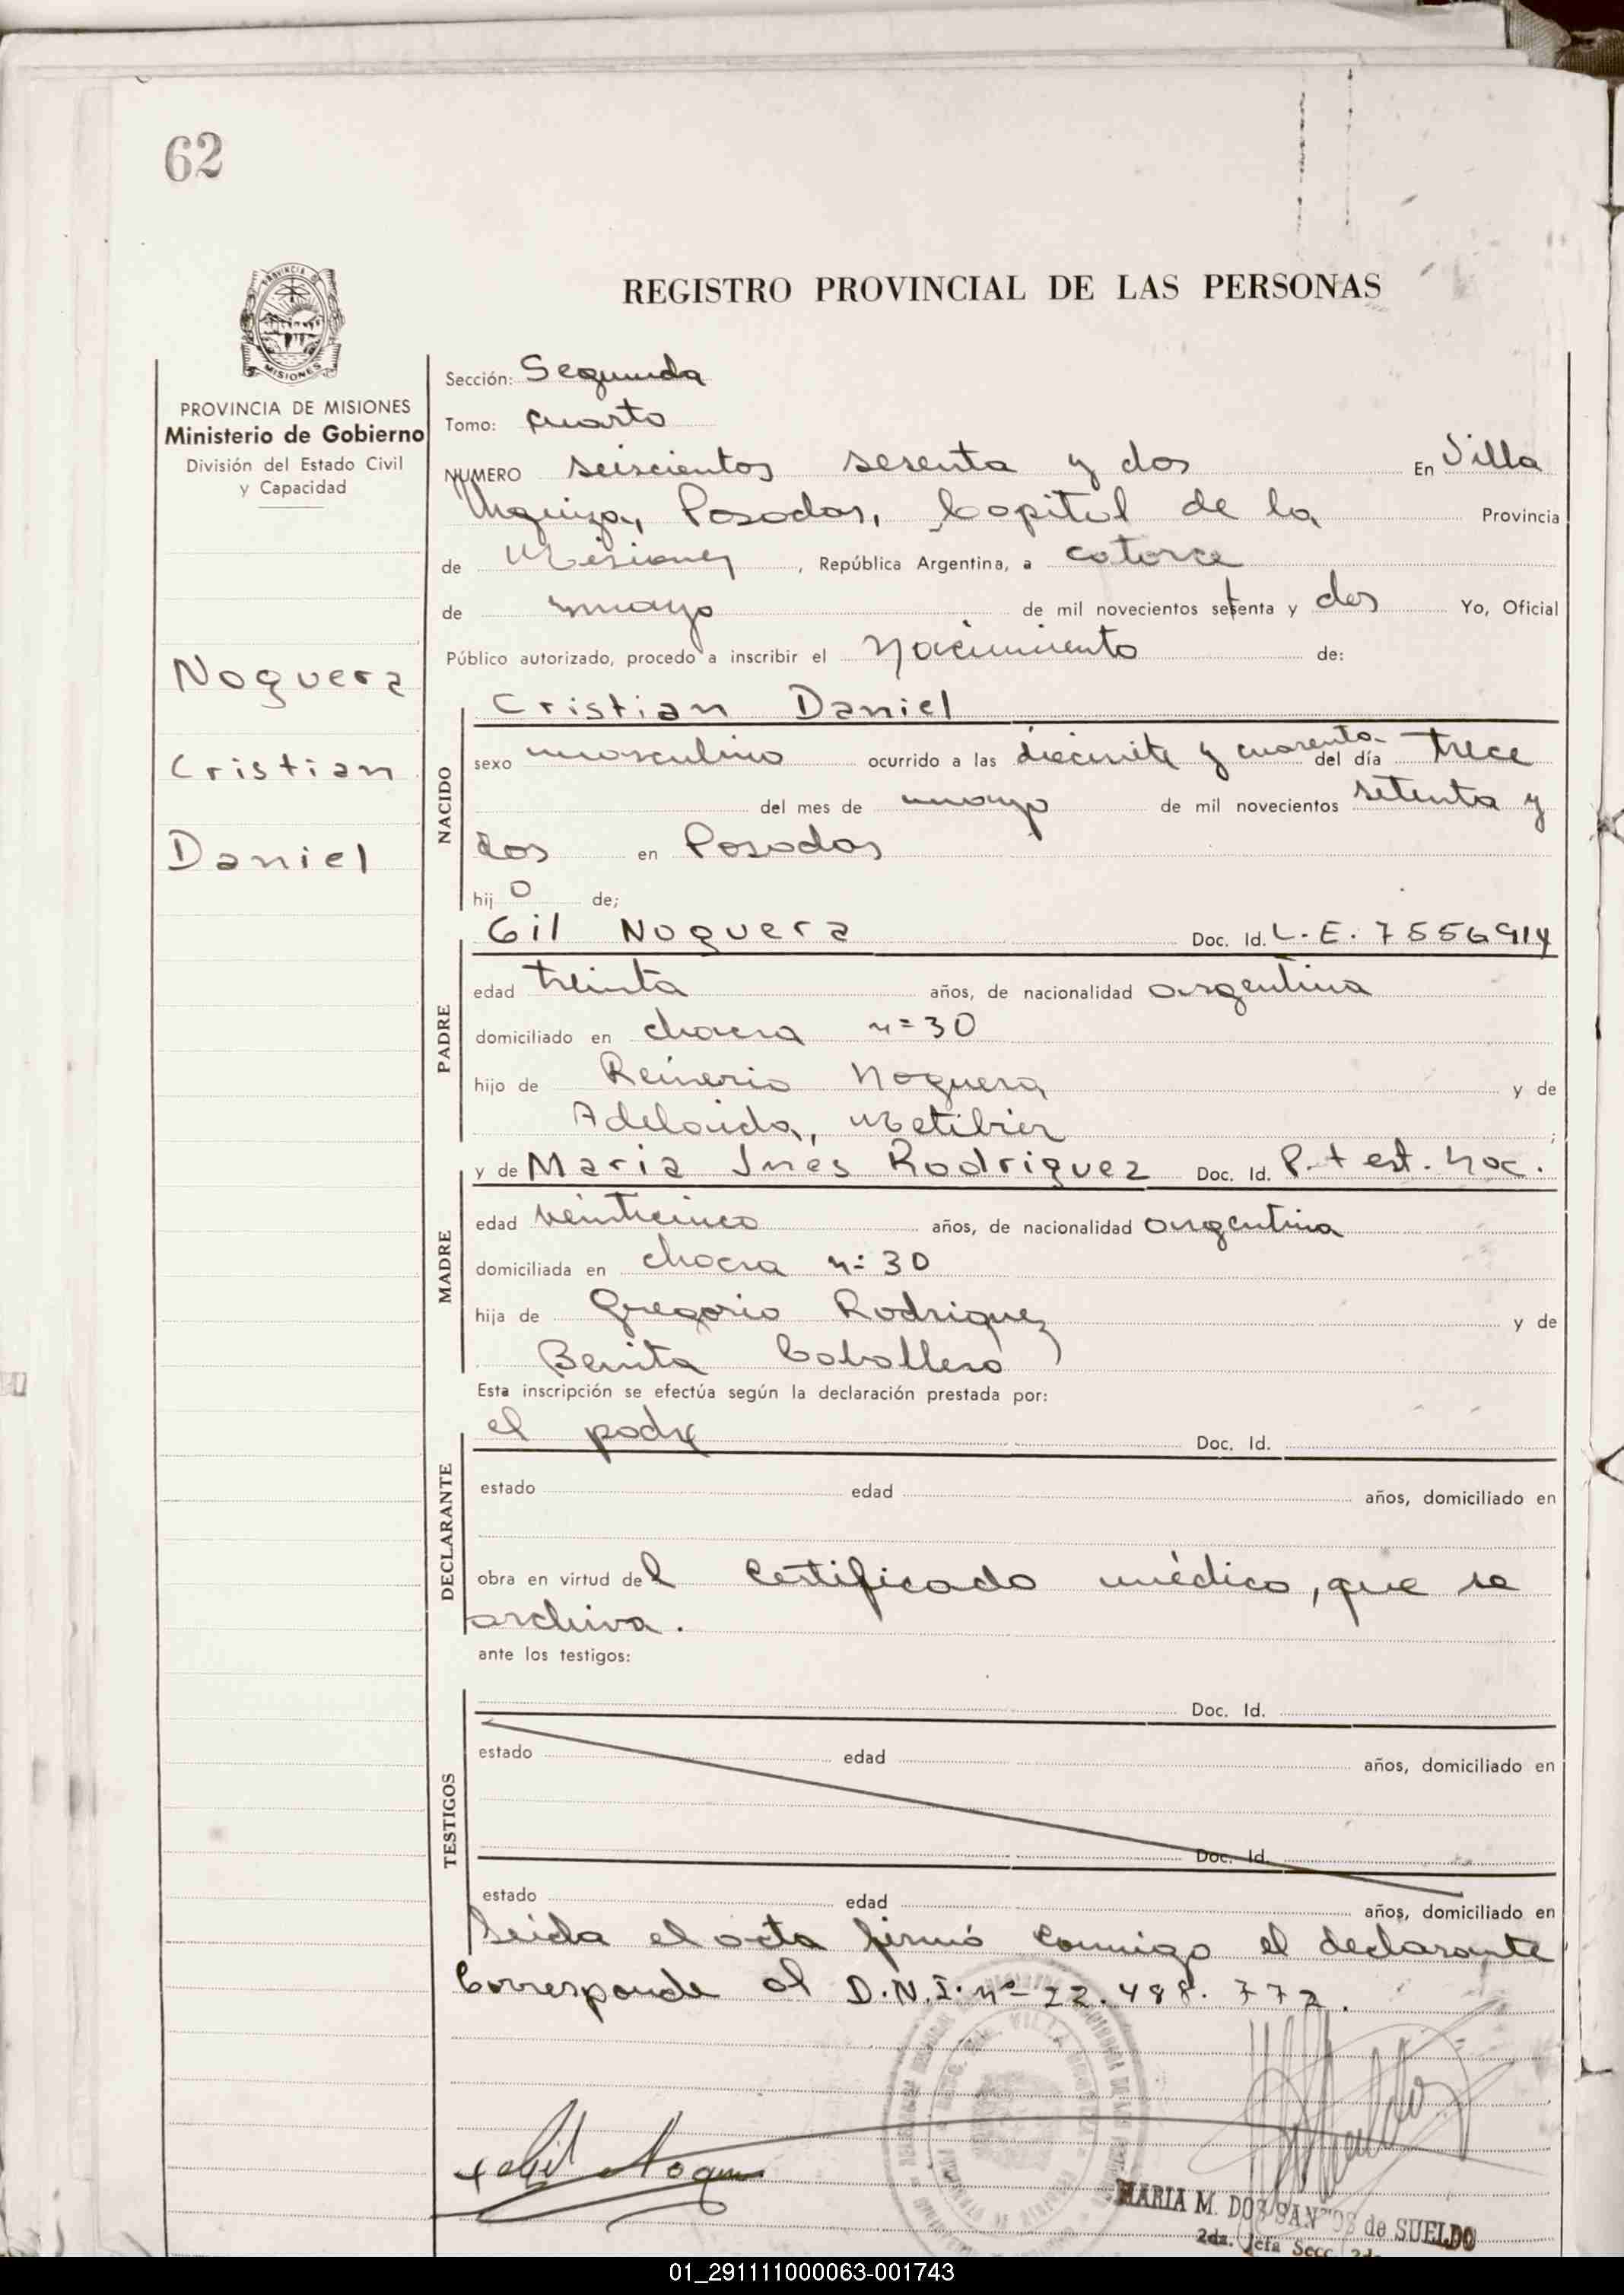 62
REGISTRO PROVINCIAL DE LAS PERSONAS
PROVINCIA DE MISIONES
Ministerio de Gobierno
División del Estado Civil
y Capacidad
Noguera
Cristian
Daniel
Sección: Segunda
Tomo: Cuarto
NUMERO seiscientos sesenta y dos En Villa
Urquiza, Posadas, Capital de la Provincia
de Misiones, República Argentina, a catorce
de mayo de mil novecientos setenta y dos Yo, Oficial
Público autorizado, procedo a inscribir el nacimiento de:
NACIDO
Cristian Daniel
sexo masculino ocurrido a las diecisiete y cuarenta del día trece
del mes de mayo de mil novecientos setenta y
dos en Posadas
hijo de;
PADRE
Gil Noguera Doc. Id. L.E. 7556914
edad treinta años, de nacionalidad argentina
domiciliado en chacra nº 30
hijo de Reinerio Noguera y de
Adelaida,
MADRE
y de Maria Ines Rodriguez Doc. Id. P. t est. nac.
edad veinticinco años, de nacionalidad argentina
domiciliada en chacra nº 30
hija de Gregorio Rodriguez y de
Benita Caballero
Esta inscripción se efectúa según la declaración prestada por:
DECLARANTE
el padre Doc. Id.
estado edad años, domiciliado en
obra en virtud del certificado médico, que se
archiva.
ante los testigos:
TESTIGOS
Doc. Id.
estado edad años, domiciliado en
Doc. Id.
estado edad años, domiciliado en
Leída el acta firmó conmigo el declarante
Corresponde al D.N.I. nº 22.488.772.
Gil Noguera
MARIA M. DOS SANTOS de SUELDO
2da. Jefa Secc. 2da
01_291111000063-001743